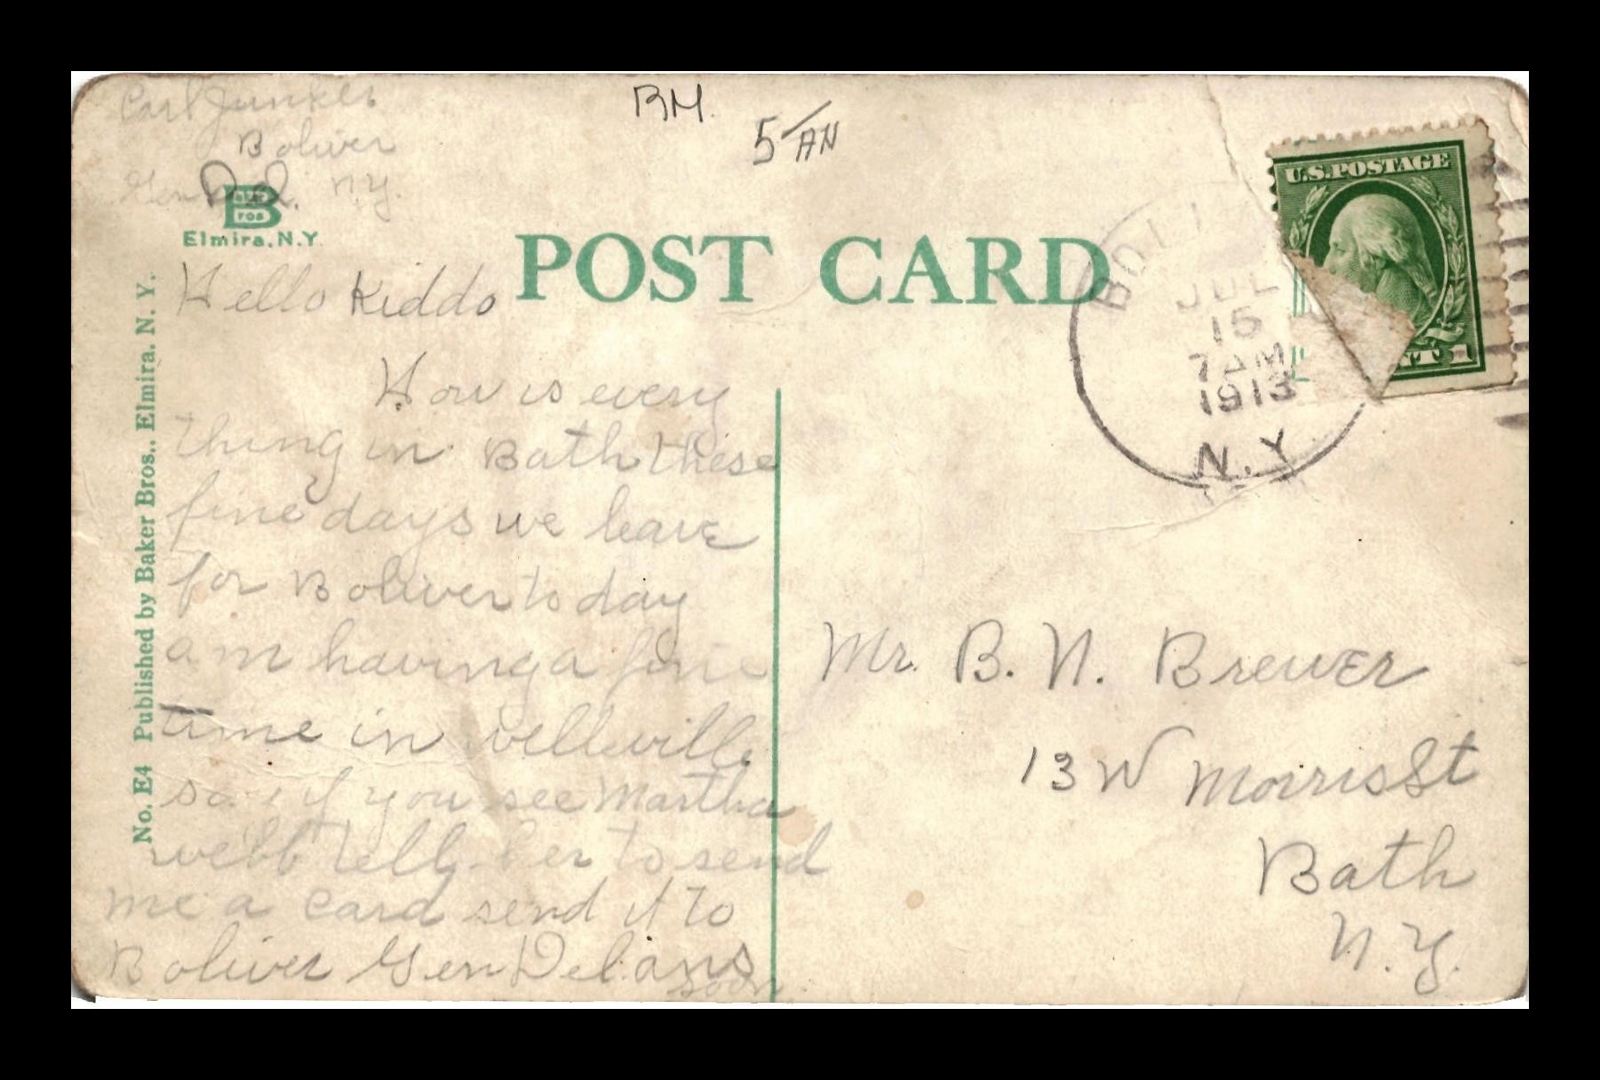 Carl Junker
Boliver
Gen Del. N.Y.
RM.
5/AN
B
ROS
Elmira, N.Y.
POST CARD
U.S.POSTAGE
BOLI
JUL
15
7 AM
1913
N.Y.
No. E4 Published by Baker Bros., Elmira, N. Y.
Hello Kiddo
How is every
thing in Bath these
fine days we leave
for Boliver to day
am having a fine
time in wellsville
say if you see Martha
webb tell her to send
me a card send it to
Boliver Gen Del. ans
soon
Mr. B. N. Brewer
13 W Morris St
Bath
N.Y.